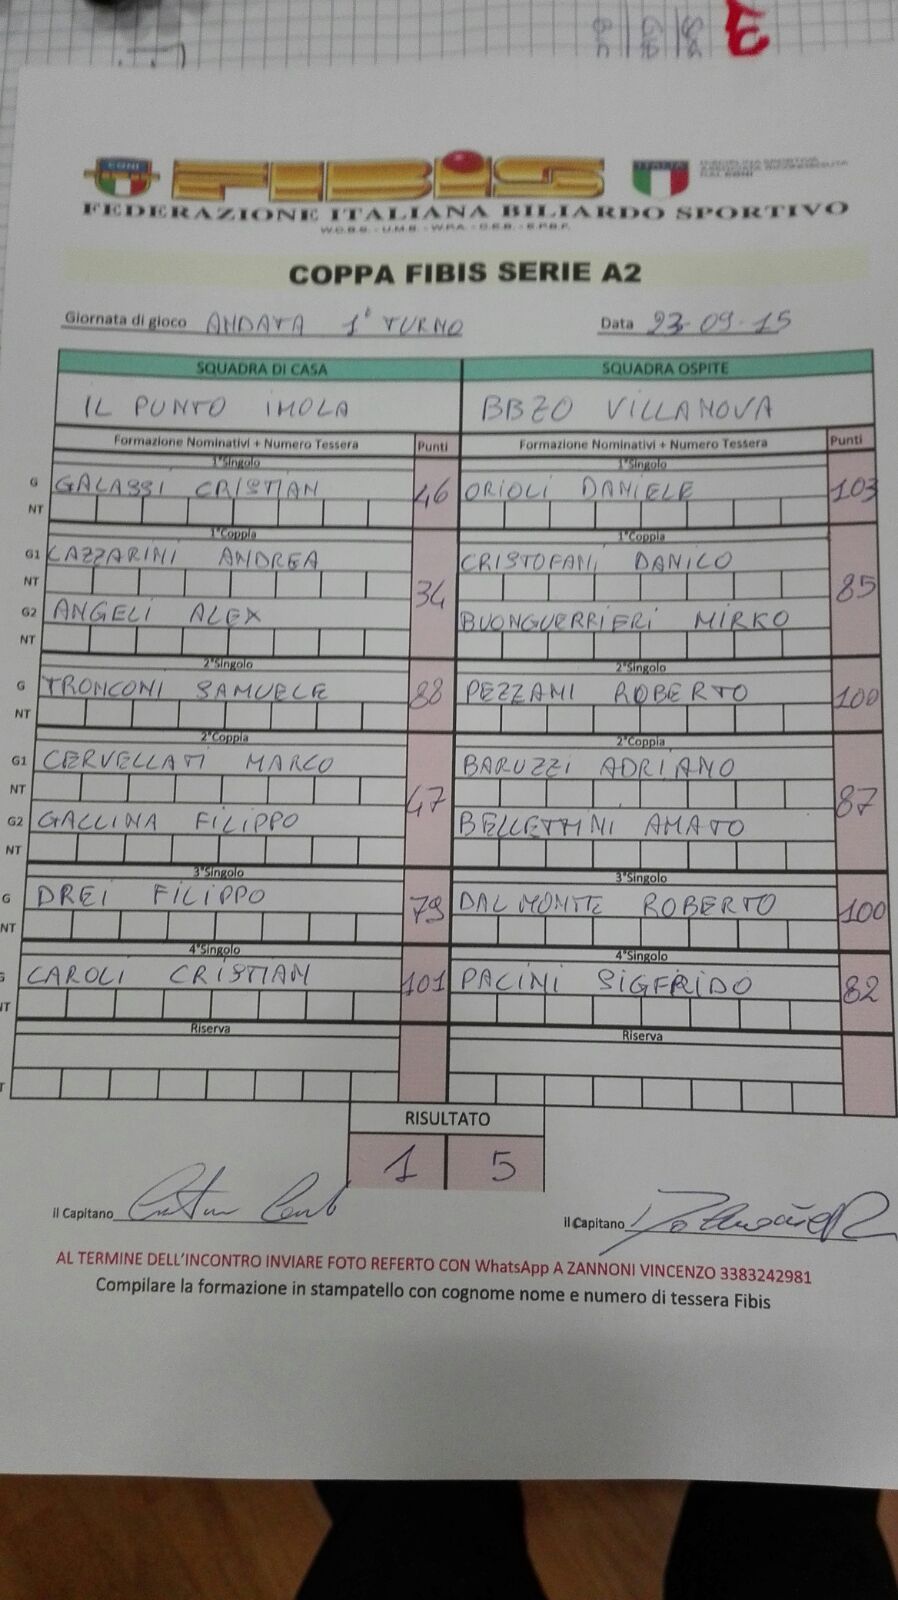 E
CONI
FIBIS
ITALIA
FEDERAZIONE ITALIANA BILIARDO SPORTIVO
COPPA FIBIS SERIE A2
Giornata di gioco ANDATA 1° TURNO Data 23-09-15
SQUADRA DI CASA SQUADRA OSPITE
IL PUNTO IMOLA BBZO VILLANOVA
Formazione Nominativi + Numero Tessera Punti Formazione Nominativi + Numero Tessera Punti
1°Singolo 1°Singolo
G GALASSI CRISTIAN 46 ORIOLI DANIELE 103
NT
1°Coppia 1°Coppia
G1 LAZZARINI ANDREA CRISTOFANI DANILO
NT 34 85
G2 ANGELI ALEX BUONGUERRIERI MIRKO
NT
2°Singolo 2°Singolo
G TRONCONI SAMUELE 88 PEZZANI ROBERTO 100
NT
2°Coppia 2°Coppia
G1 CERVELLATI MARCO BARUZZI ADRIANO
NT 47 87
G2 GALLINA FILIPPO BELLETTINI AMATO
NT
3°Singolo 3°Singolo
G DREI FILIPPO 79 DAL MONTE ROBERTO 100
NT
4°Singolo 4°Singolo
G CAROLI CRISTIAN 101 PACINI SIGFRIDO 82
NT
Riserva Riserva
RISULTATO
1 5
il Capitano il Capitano
AL TERMINE DELL'INCONTRO INVIARE FOTO REFERTO CON WhatsApp A ZANNONI VINCENZO 3383242981
Compilare la formazione in stampatello con cognome nome e numero di tessera Fibis